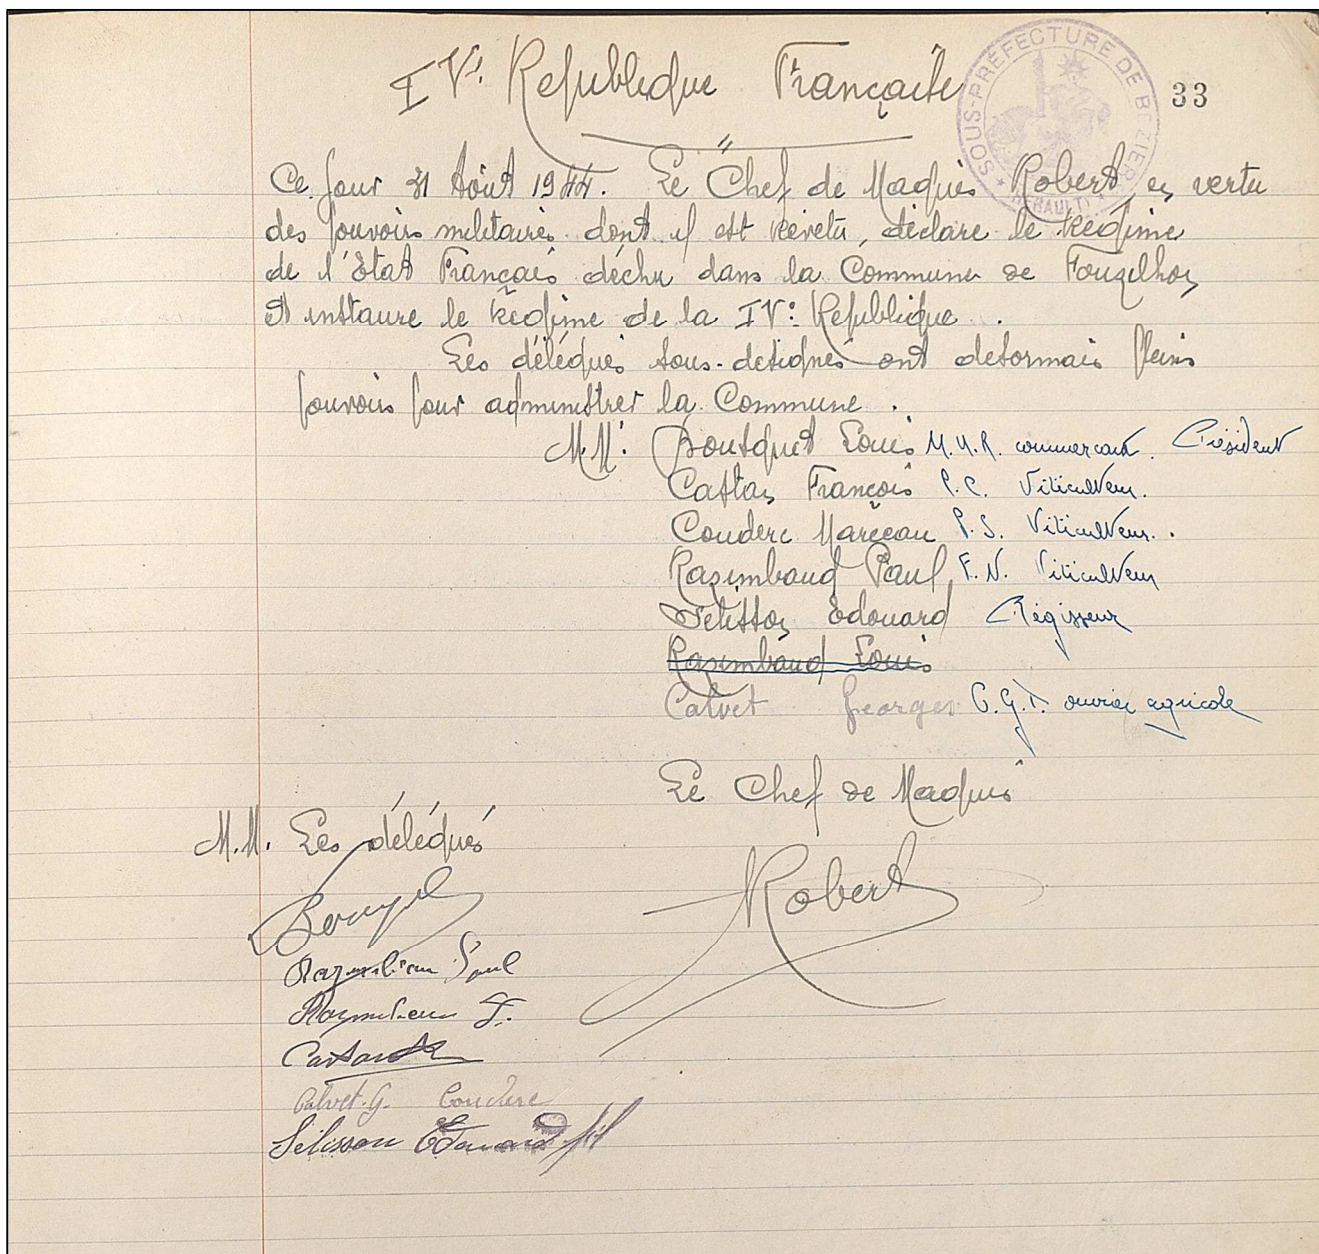 IVº République Française
SOUS-PRÉFECTURE DE BEZIERS
(HÉRAULT)
33
Ce jour 31 Août 1944. Le Chef de Maquis Robert en vertu
des pouvoirs militaires dont il est revêtu, déclare le Régime
de l'Etat Français déchu dans la Commune de Fouzilhon
et instaure le Régime de la IVº République.
Les délégués sous-désignés ont désormais pleins
pouvoirs pour administrer la Commune.
M.M. Bousquet Louis M.U.R. commerçant. Président
Castan François P.C. Viticulteur.
Couderc Marceau P.S. Viticulteur.
Razimbaud Paul F.N. Viticulteur
Pelisson Edouard Régisseur
Razimbaud Louis
Calvet Georges C.G.T. ouvrier agricole
Le Chef de Maquis
M.M. Les délégués
Robert
Bousquet
Razimbaud Paul
Razimbaud
Castan
Calvet.G. Couderc
Pélisson Edouard fils